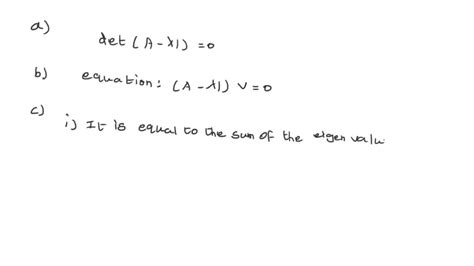 a)
det (A - λI) = 0
b) equation: (A - λI) v = 0
c)
i) It is equal to the sum of the eigen valu